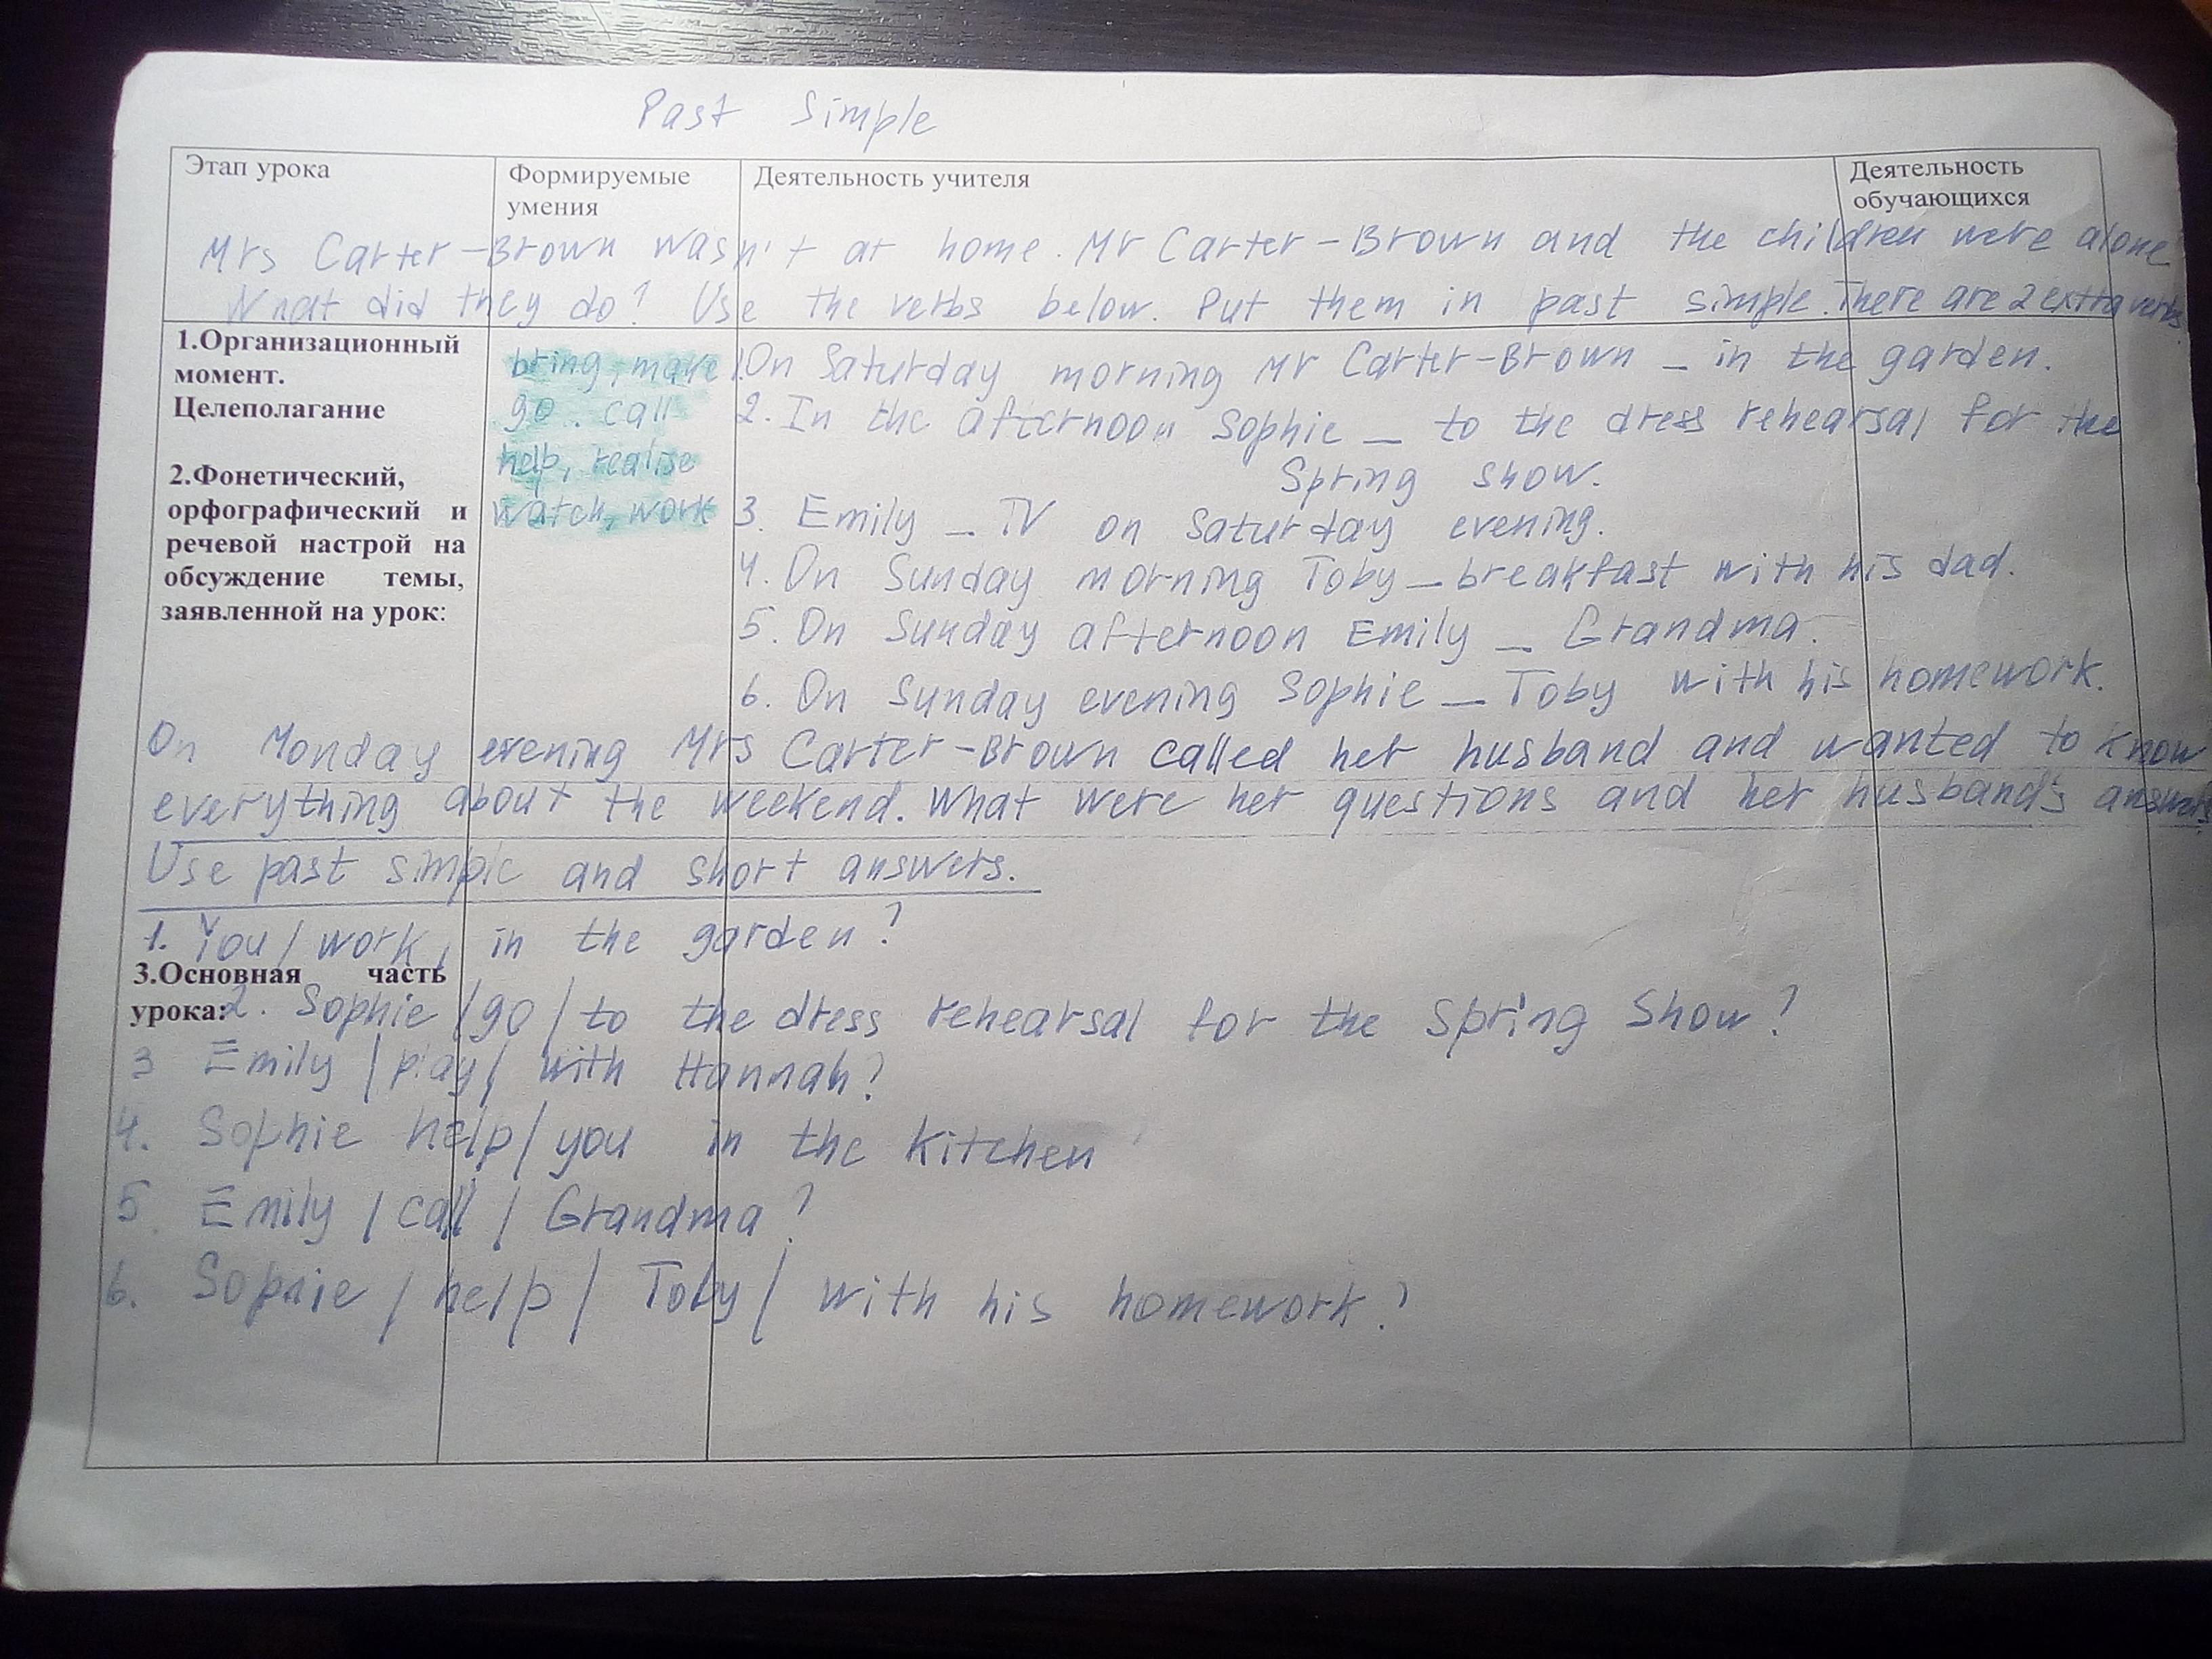 Past Simple
Этап урока
Формируемые
умения
Деятельность учителя
Деятельность
обучающихся
Mrs Carter-Brown wasn't at home. Mr Carter-Brown and the children were alone
What did they do? Use the verbs below. Put them in past simple. There are 2 extra verbs.
1.Организационный
момент.
Целеполагание
2.Фонетический,
орфографический и
речевой настрой на
обсуждение темы,
заявленной на урок:
bring, make
go, call
help, realise
watch, work
1.On Saturday morning Mr Carter-Brown _ in the garden.
2. In the afternoon Sophie _ to the dress rehearsal for the
Spring show.
3. Emily _ TV on Saturday evening.
4. On Sunday morning Toby _ breakfast with his dad.
5. On Sunday afternoon Emily _ Grandma.
6. On Sunday evening Sophie _ Toby with his homework.
On Monday evening Mrs Carter-Brown called her husband and wanted to know
everything about the weekend. What were her questions and her husband's answers
Use past simple and short answers.
1. You / work, in the garden?
3.Основная часть
урока:
2. Sophie / go / to the dress rehearsal for the Spring Show?
3 Emily / play / with Hannah?
4. Sophie help / you in the kitchen
5. Emily / call / Grandma?
6. Sophie / help / Toby / with his homework?